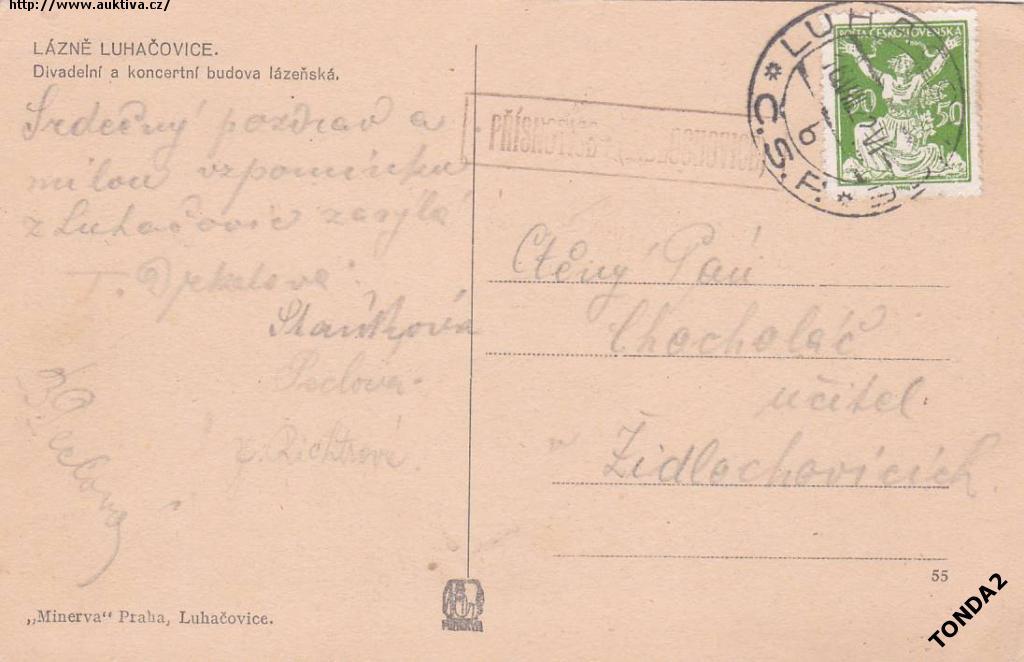 http://www.auktiva.cz/
LÁZNĚ LUHAČOVICE.
Divadelní a koncertní budova lázeňská.
Srdečný pozdrav a
milou vzpomínku
z Luhačovic zasýlá
Staňková
Peclová
Richtrová
POŠTA ČESKOSLOVENSKÁ
50 50
LUH
Č.S.P.
b
Ctěný Pán
Chocholáč
učitel
v Židlochovicích
55
„Minerva“ Praha, Luhačovice.
MINERVA
TONDA2